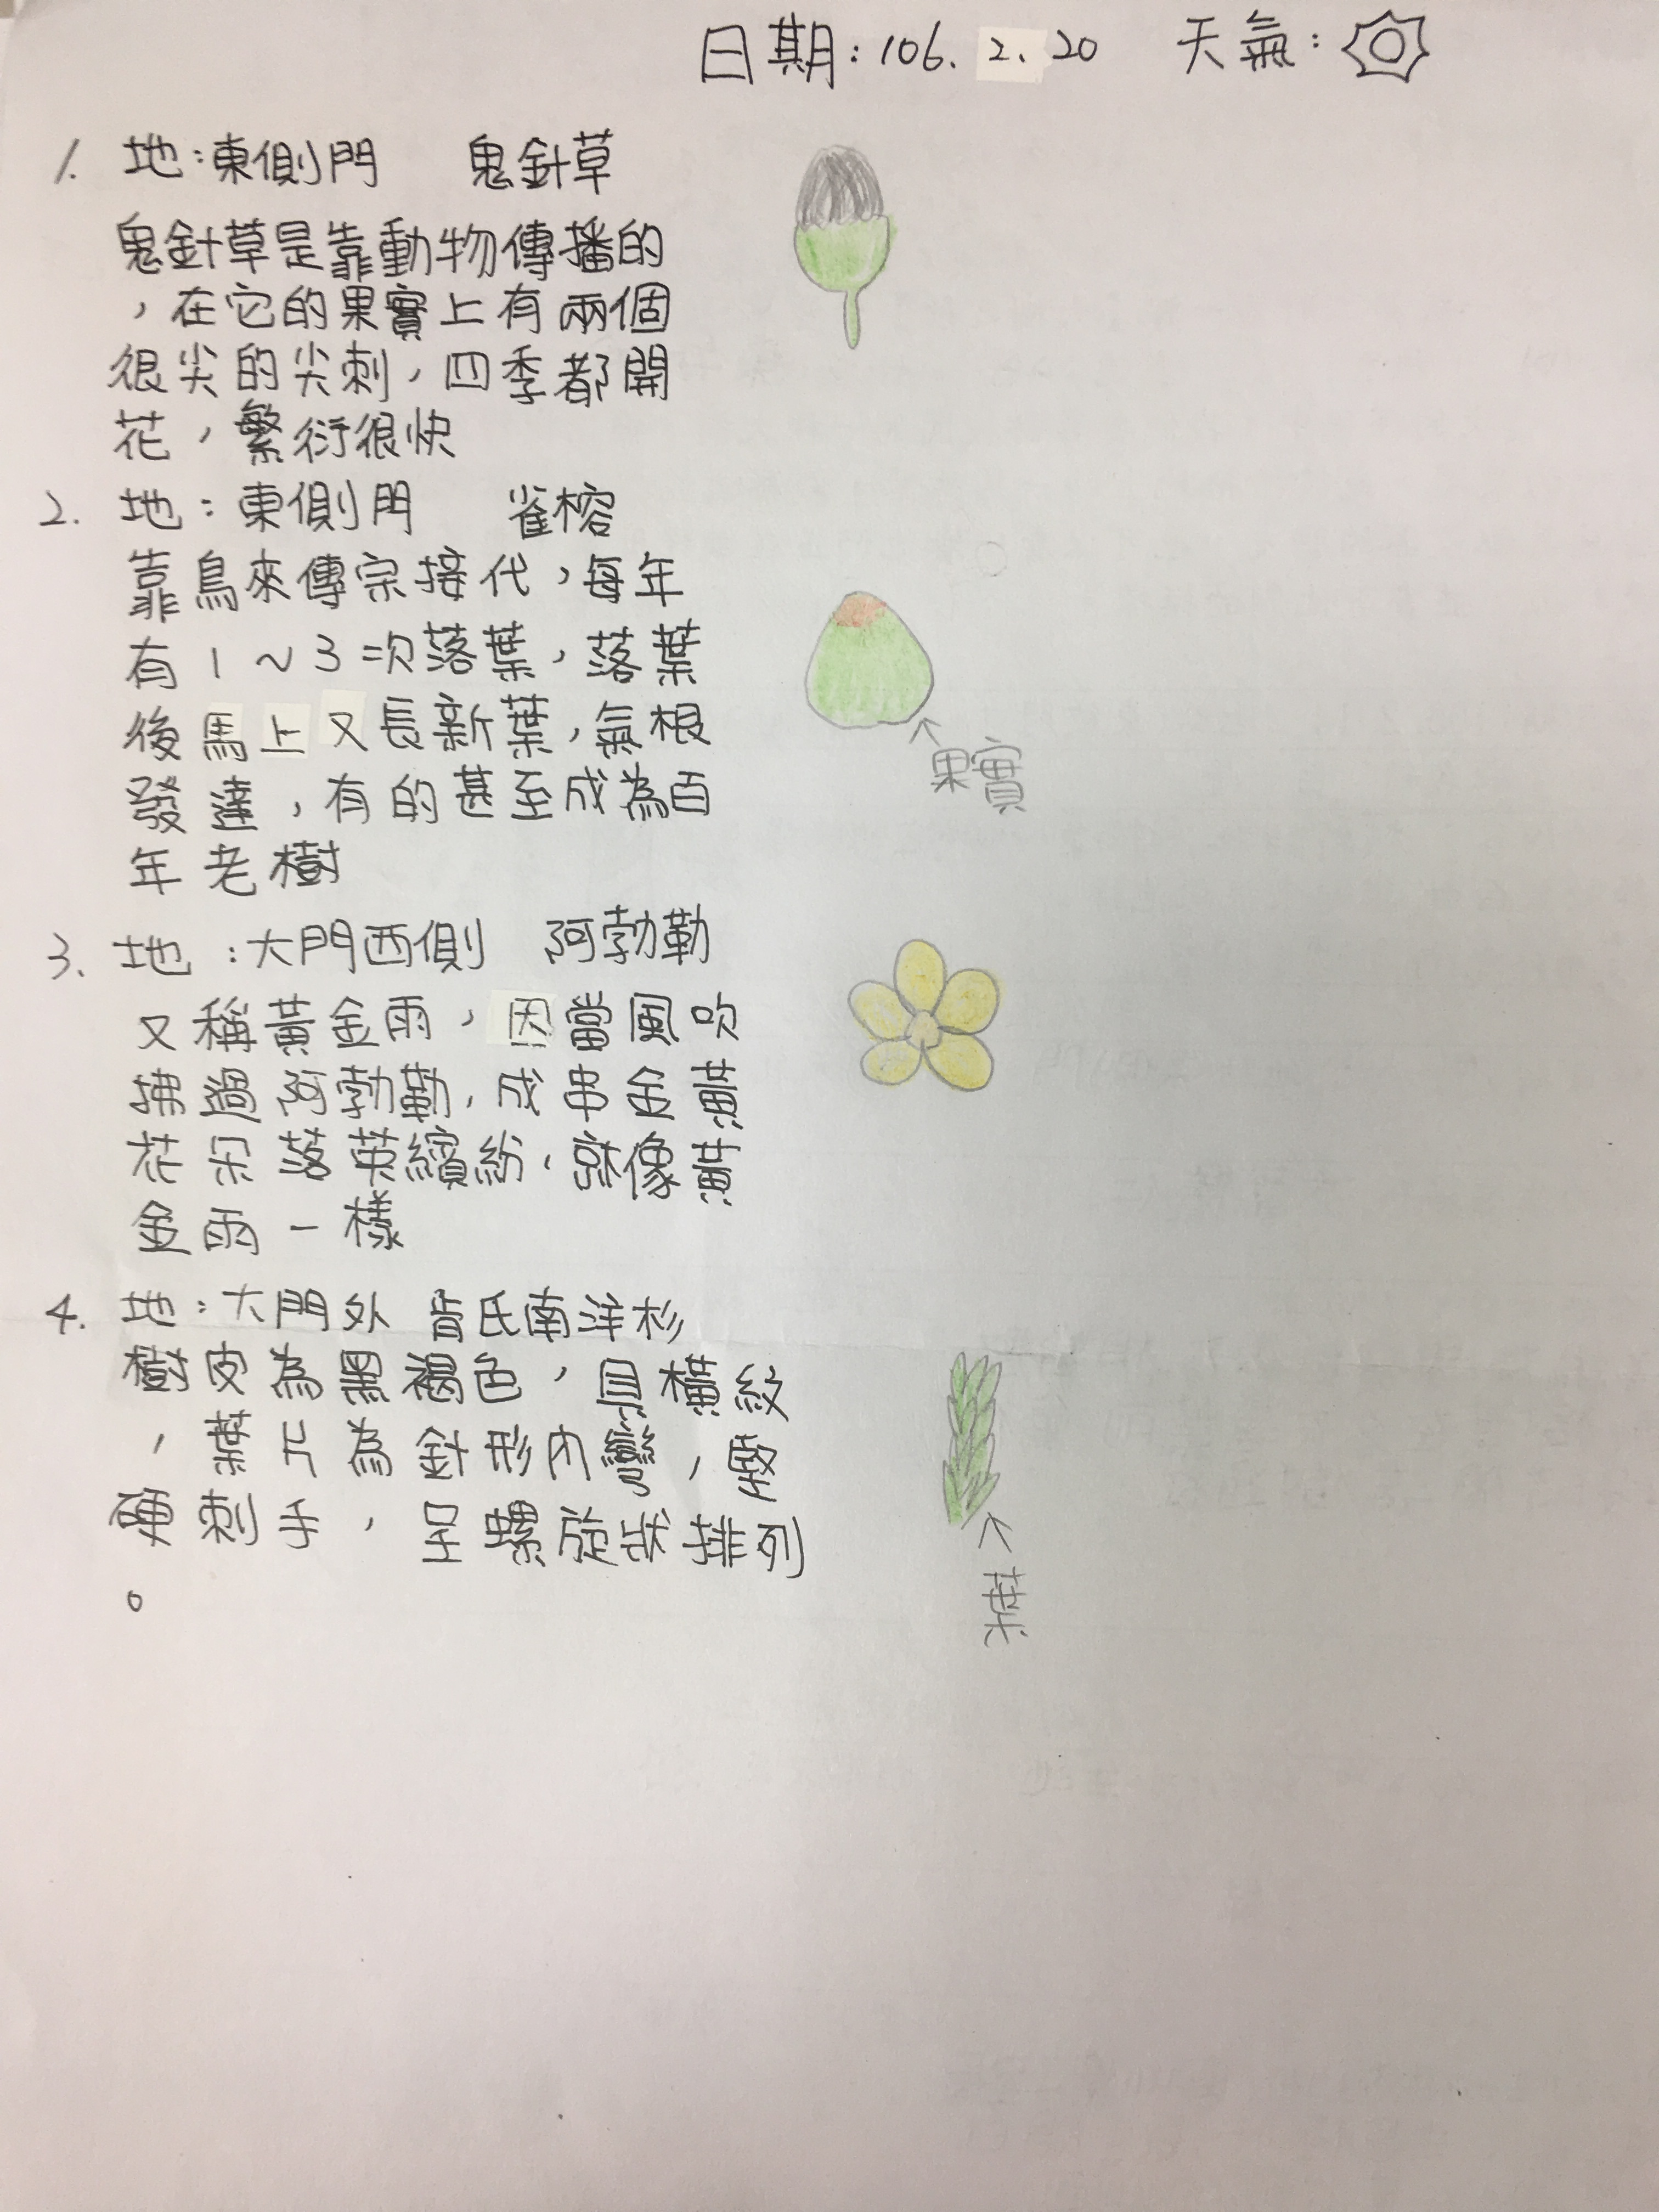 日期：106.2.20 天氣：
1. 地：東側門 鬼針草
鬼針草是靠動物傳播的
，在它的果實上有兩個
很尖的尖刺，四季都開
花，繁衍很快
2. 地：東側門 雀榕
靠鳥來傳宗接代，每年
有1~3次落葉，落葉
後馬上又長新葉，氣根
發達，有的甚至成為百
年老樹
果實
3. 地：大門西側 阿勃勒
又稱黃金雨，因當風吹
拂過阿勃勒，成串金黃
花朵落英繽紛，就像黃
金雨一樣
4. 地：大門外 肯氏南洋杉
樹皮為黑褐色，具橫紋
，葉片為針形內彎，堅
硬刺手，呈螺旋狀排列
。
葉